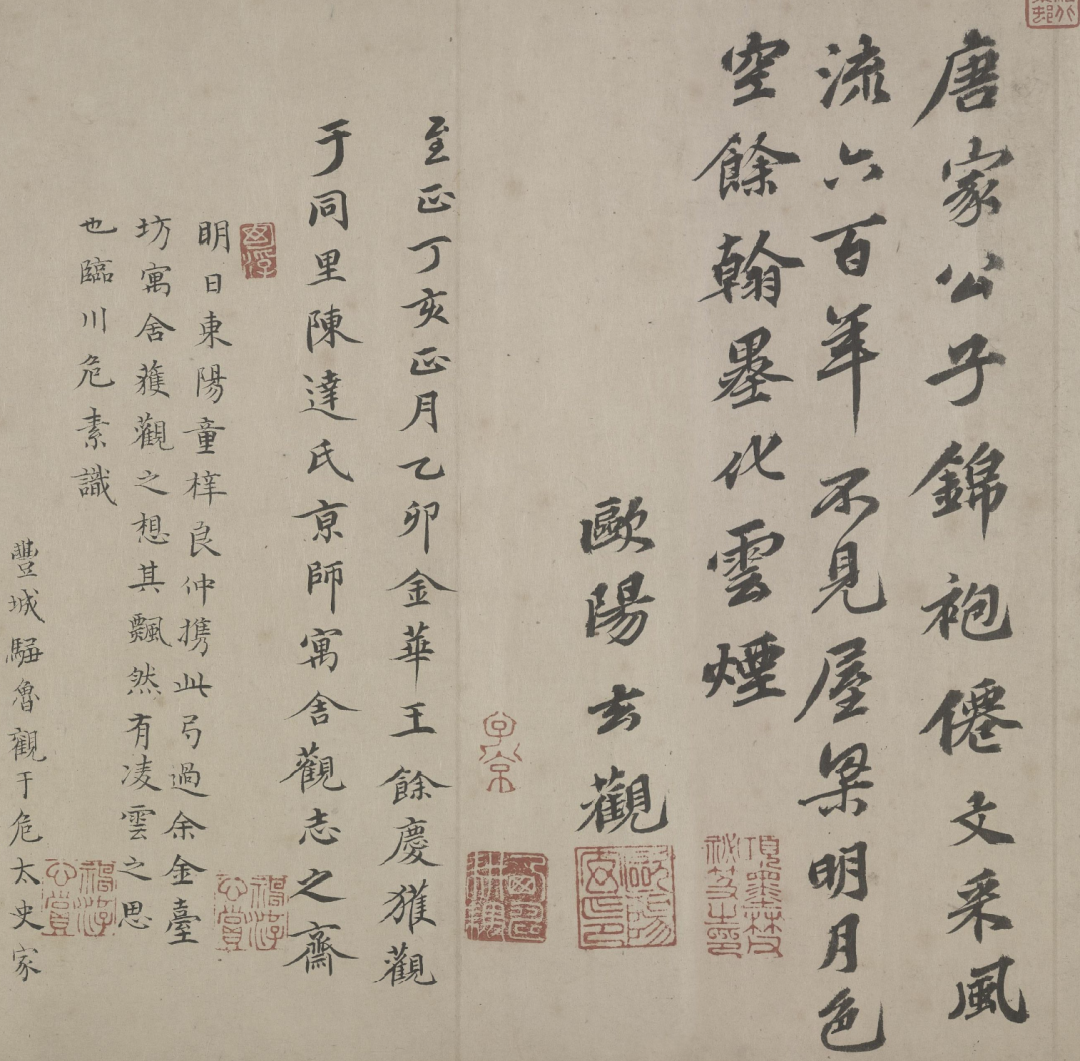 唐家公子錦袍僊文采風
流六百年不見屋梁明月色
空餘翰墨化雲煙
歐陽玄觀
至正丁亥正月乙卯金華王餘慶獲觀
于同里陳達氏京師寓舍觀志之齋
明日東陽童梓良仲携此弓過余金臺
坊寓舍獲觀之想其飄然有凌雲之思
也臨川危素識
豐城騶魯觀于危太史家